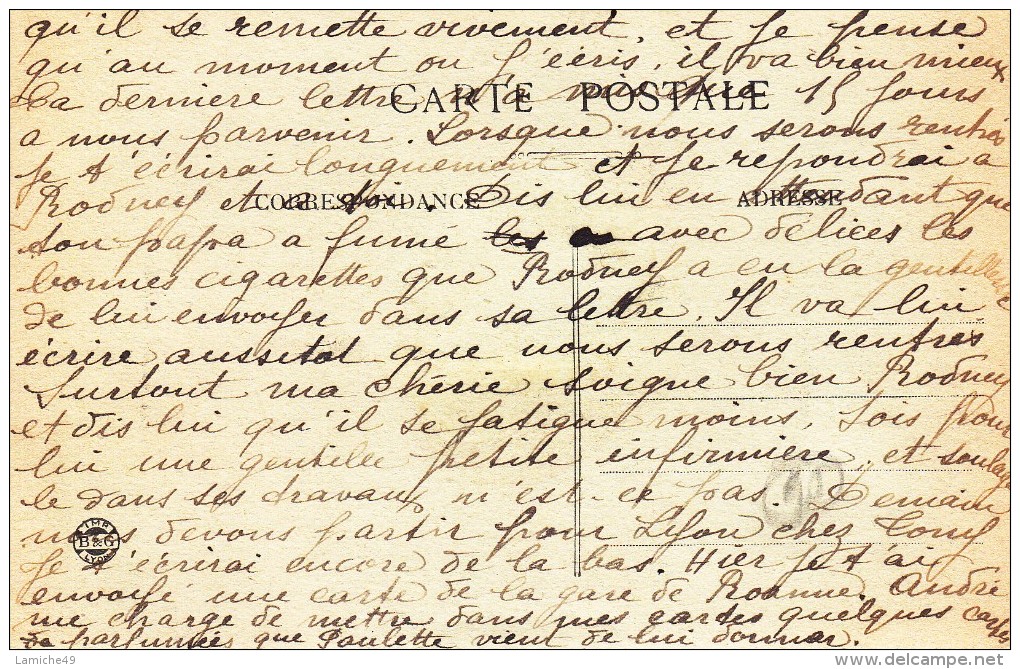 qu'il se remette vivement, et je pense
qu'au moment ou j'écris, il va bien mieux
Sa derniere lettre a mis que 15 jours
CARTE POSTALE
a nous parvenir. Lorsque nous serons rentrés
je t'écrirai longuement et je repondrai a
Rodney et a toi. Dis lui en attendant que
CORRESPONDANCE ADRESSE
son papa a fumé les avec délices les
bonnes cigarettes que Rodney a eu la gentillesse
de lui envoyer dans sa lettre. Il va lui
écrire aussitot que nous serons rentrés
Surtout ma chérie soigne bien Rodney
et dis lui qu'il se fatigue moins, sois pour
lui une gentille petite infirmière, et soulage
le dans ses travaux n'est-ce pas. Demain
nous devons partir pour Lyon chez Tony
IMP. B&G LYON
Je t'écrirai encore de la bas. Hier je t'ai
envoyé une carte de la gare de Roanne. André
me charge de mettre dans mes cartes quelques cartes
de parfumées que Paulette vient de lui donner.
Lamiche49
www.delcampe.net